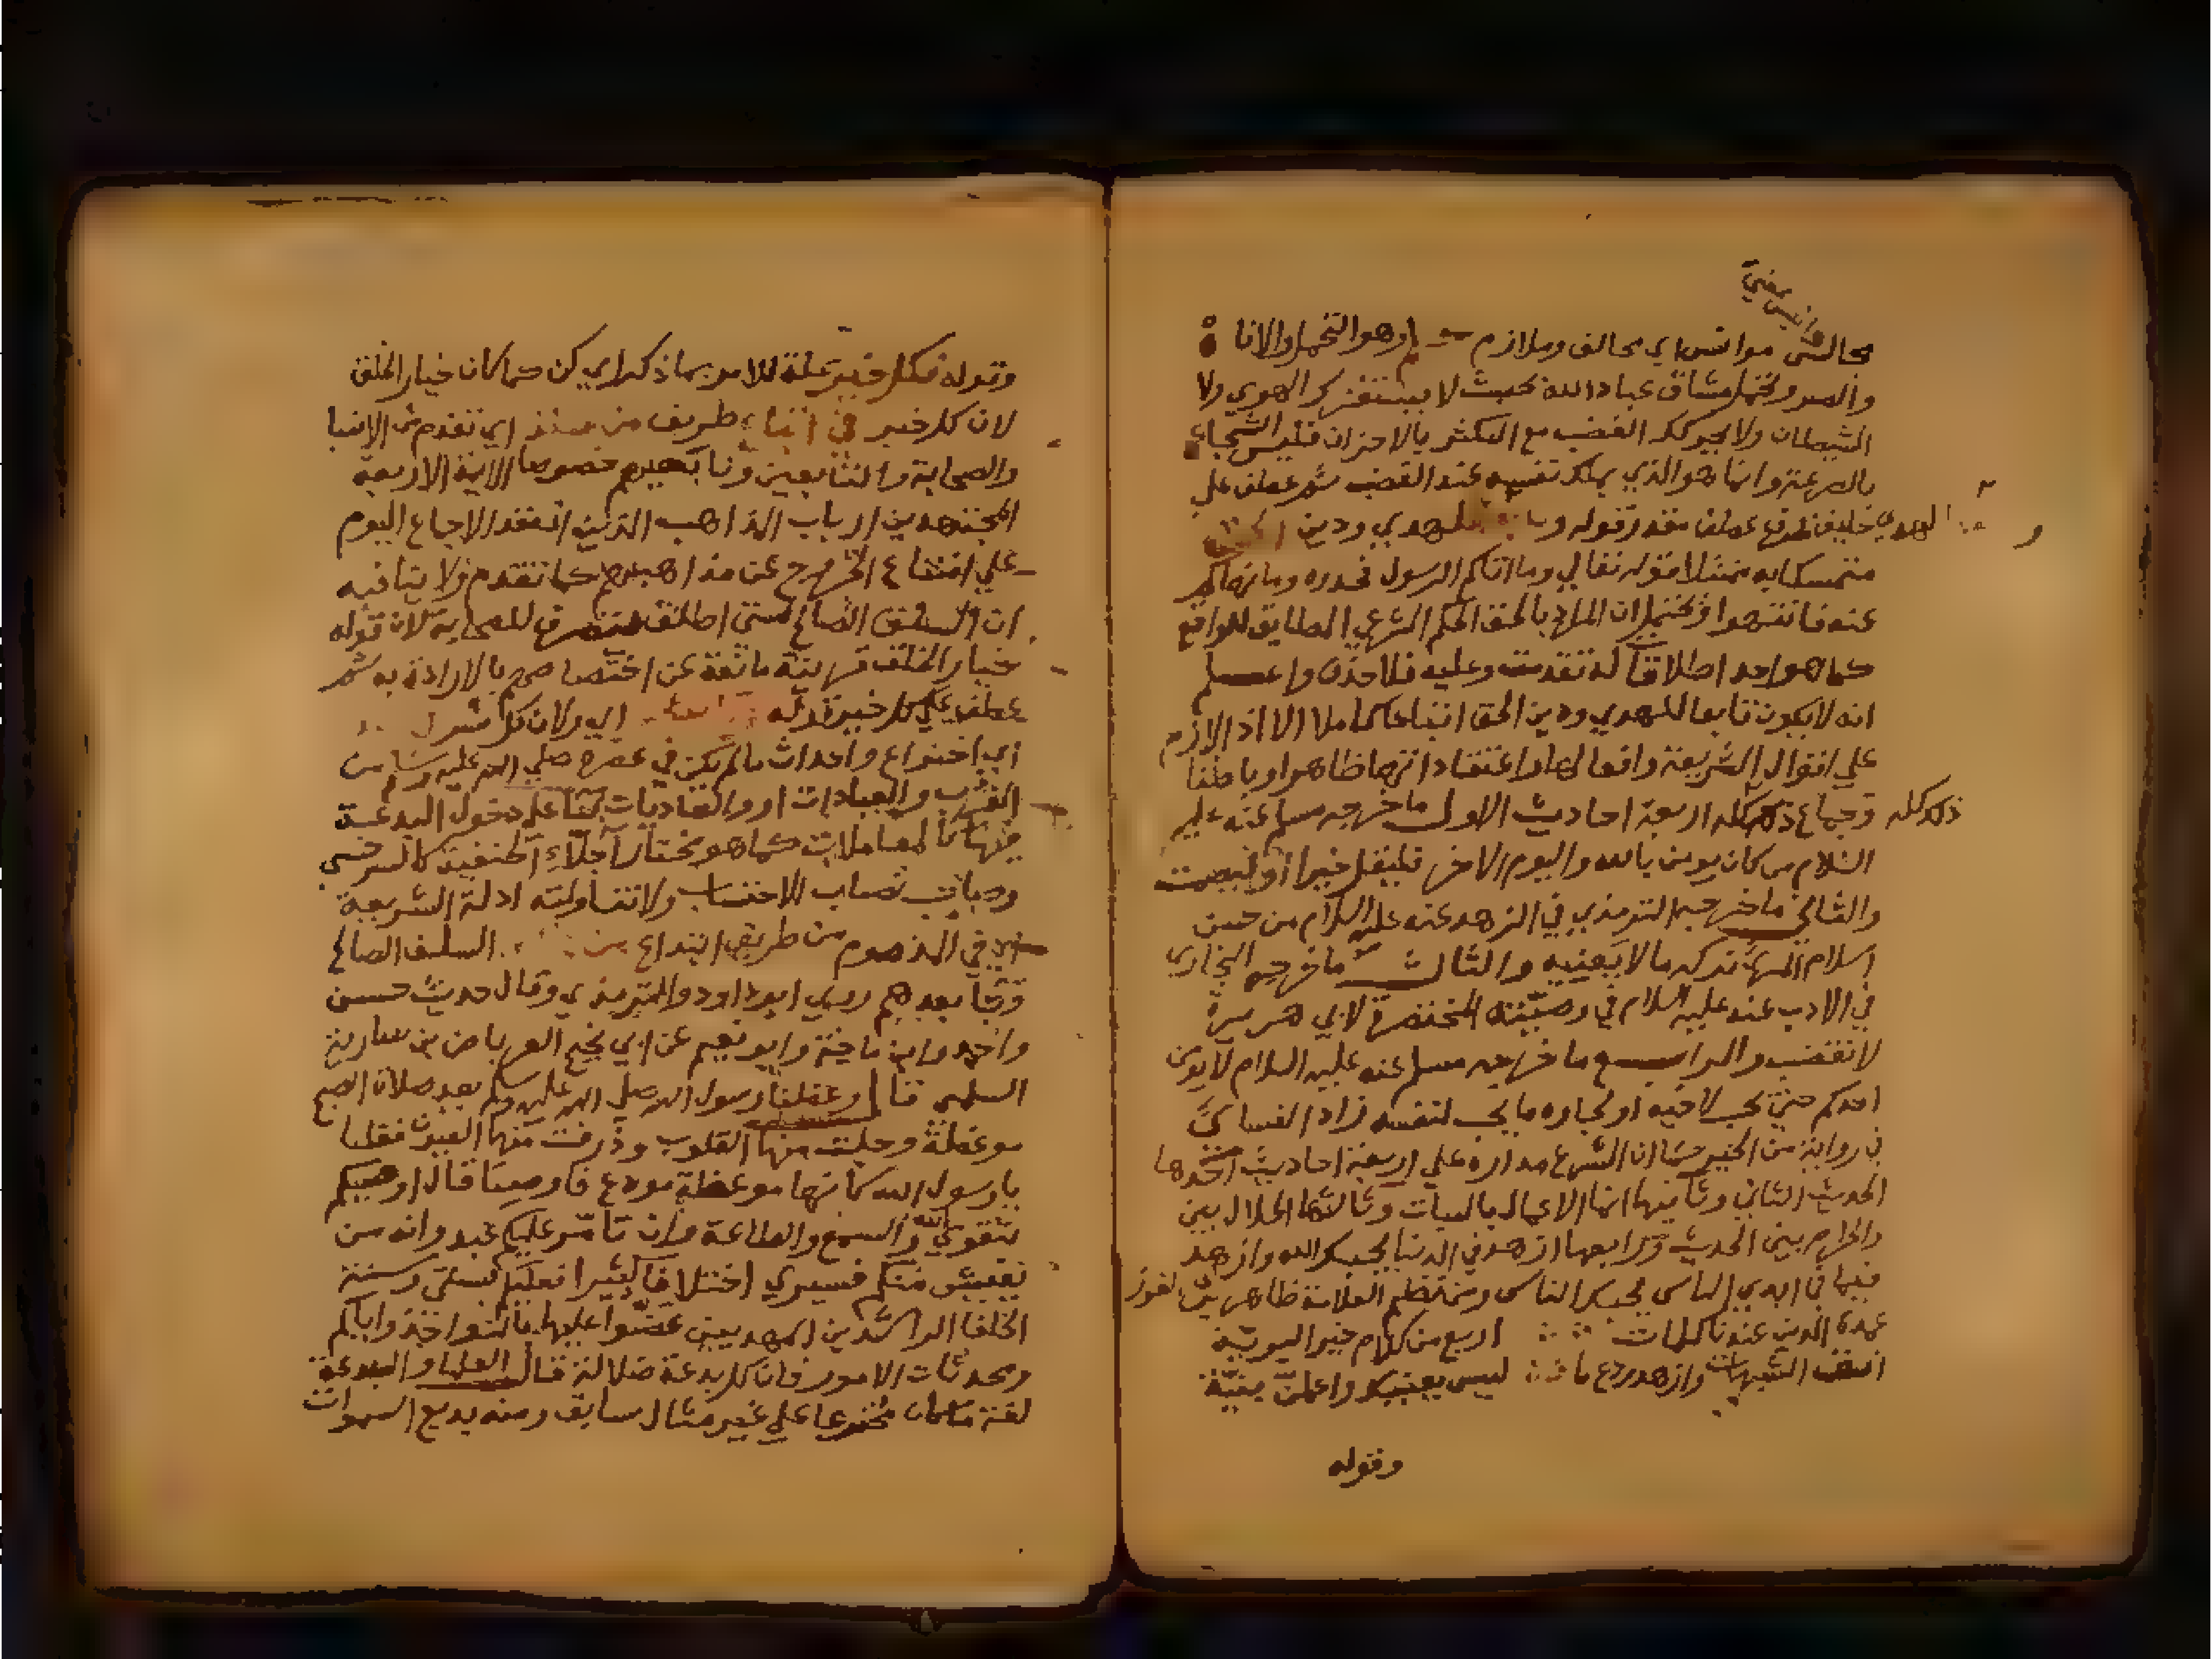 وانيس بمعني
مجالس موانس اي محالف وملازم حلم وهو التحمل والاناة
والصبر وتحمل مشاق عباد الله بحيث لا يستفزك الهوي ولا
الشيطان ولا يحركك الغضب مع التكثر بالاحزان فليس الشجاع
بالصرعة وانما هو الذي يملك نفسه عند الغضب ثم عطف علي
خليف عطف مقدر قوله و للهدي ودين
متمسكا به ممتثلا قوله تعالي وما اتاكم الرسول فخذوه وما نهاكم
عنه فانتهوا ويحتمل ان المراد بالحق الحكم الشرعي المطابق للواقع
كما هو احد اطلاقات له تقدمت وعليه فلا حذف واعلم
انه لا يكون تابعا للهدي ودين الحق اتباعا كاملا الا اذا لازم
علي اقوال الشريعة وافعالها واعتقاداتها ظاهرا وباطنا
وجماع ذلك كله اربعة احاديث الاول ما خرجه مسلم عنه عليه
ذلك كله
السلام من كان يومن بالله واليوم الاخر فليقل خيرا او ليصمت
والثاني ما خرجه الترمذي في الزهد عنه عليه السلام من حسن
اسلام المرء تركه ما لا يعنيه والثالث ما خرجه البخاري
في الادب عنه عليه السلام في وصيته المختصرة لابي هريرة
لا تغضب والرابع ما خرجه مسلم عنه عليه السلام لا يومن
احدكم حتي يحب لاخيه او لجاره ما يحب لنفسه زاد النسائي
في رواية من الخير كما ان الشرع مداره علي اربعة احاديث احدها
الحديث الثاني وثانيها انما الاعمال بالنيات وثالثها الحلال بين
والحرام بين الحديث ورابعها ازهد في الدنيا يحبك الله وازهد
فيما في ايدي الناس يحبك الناس ومن نظم العلامة ظاهر بن الفوز
عمدة الدين عندنا كلمات اربع من كلام خير البرية
اتق الشبهات وازهد ودع ما ليس يعنيك واعملن بنية
وقوله
وقوله فكل خير علة للامر بما ذكر اي كن كما كان خيار الخلق
لان كل خير في اتباع طريق من سلف اي تقدم من الانبيا
والصحابة والتابعين وتابعيهم خصوصا الايمة الاربعة
المجتهدين ارباب المذاهب الذين انعقد الاجماع اليوم
علي امتناع الخروج عن مذاهبهم كما تقدم ولا ينافيه
ان السلف الصالح متي اطلق انصرف للصحابة لان قوله
خيار الخلق قرينة مانعة عن اختصاصهم بالارادة به ثم
عطف علي كل خير قوله اي ولان كل شر
اي اختراع واحداث ما لم يكن في عصره صلي الله عليه وسلم من
القرب والعبادات او والعاديات بنا علي دخول البدعة
فيها كالمعاملات كما هو مختار اجلاء الحنفية كالسرخسي
وصاحب نصاب الاحتساب ولا تتناولته ادلة الشريعة
اي في المذموم من طريق ابتداع من السلف الصالح
وتابعدهم روي ابو داود والترمذي وقال حديث حسن
واحمد وابن ماجة وابو نعيم عن ابي نجيح العرباض بن سارية
السلمي قال وعظنا رسول الله صلي الله عليه وسلم بعد صلاة الصبح
موعظة وجلت منها القلوب وذرفت منها العيون فقلنا
يا رسول الله كانها موعظة مودع فاوصينا قال اوصيكم
بتقوي الله والسمع والطاعة وان تامر عليكم عبد وانه من
يعيش منكم فسيري اختلافا كثيرا فعليكم بسنتي وسنة
الخلفا الراشدين المهديين عضوا عليها بالنواجذ واياكم
ومحدثات الامور فان كل بدعة ضلالة قال العلما والبدعة
لغة ما كان مخترعا علي غير مثال سابق ومنه بديع السموات